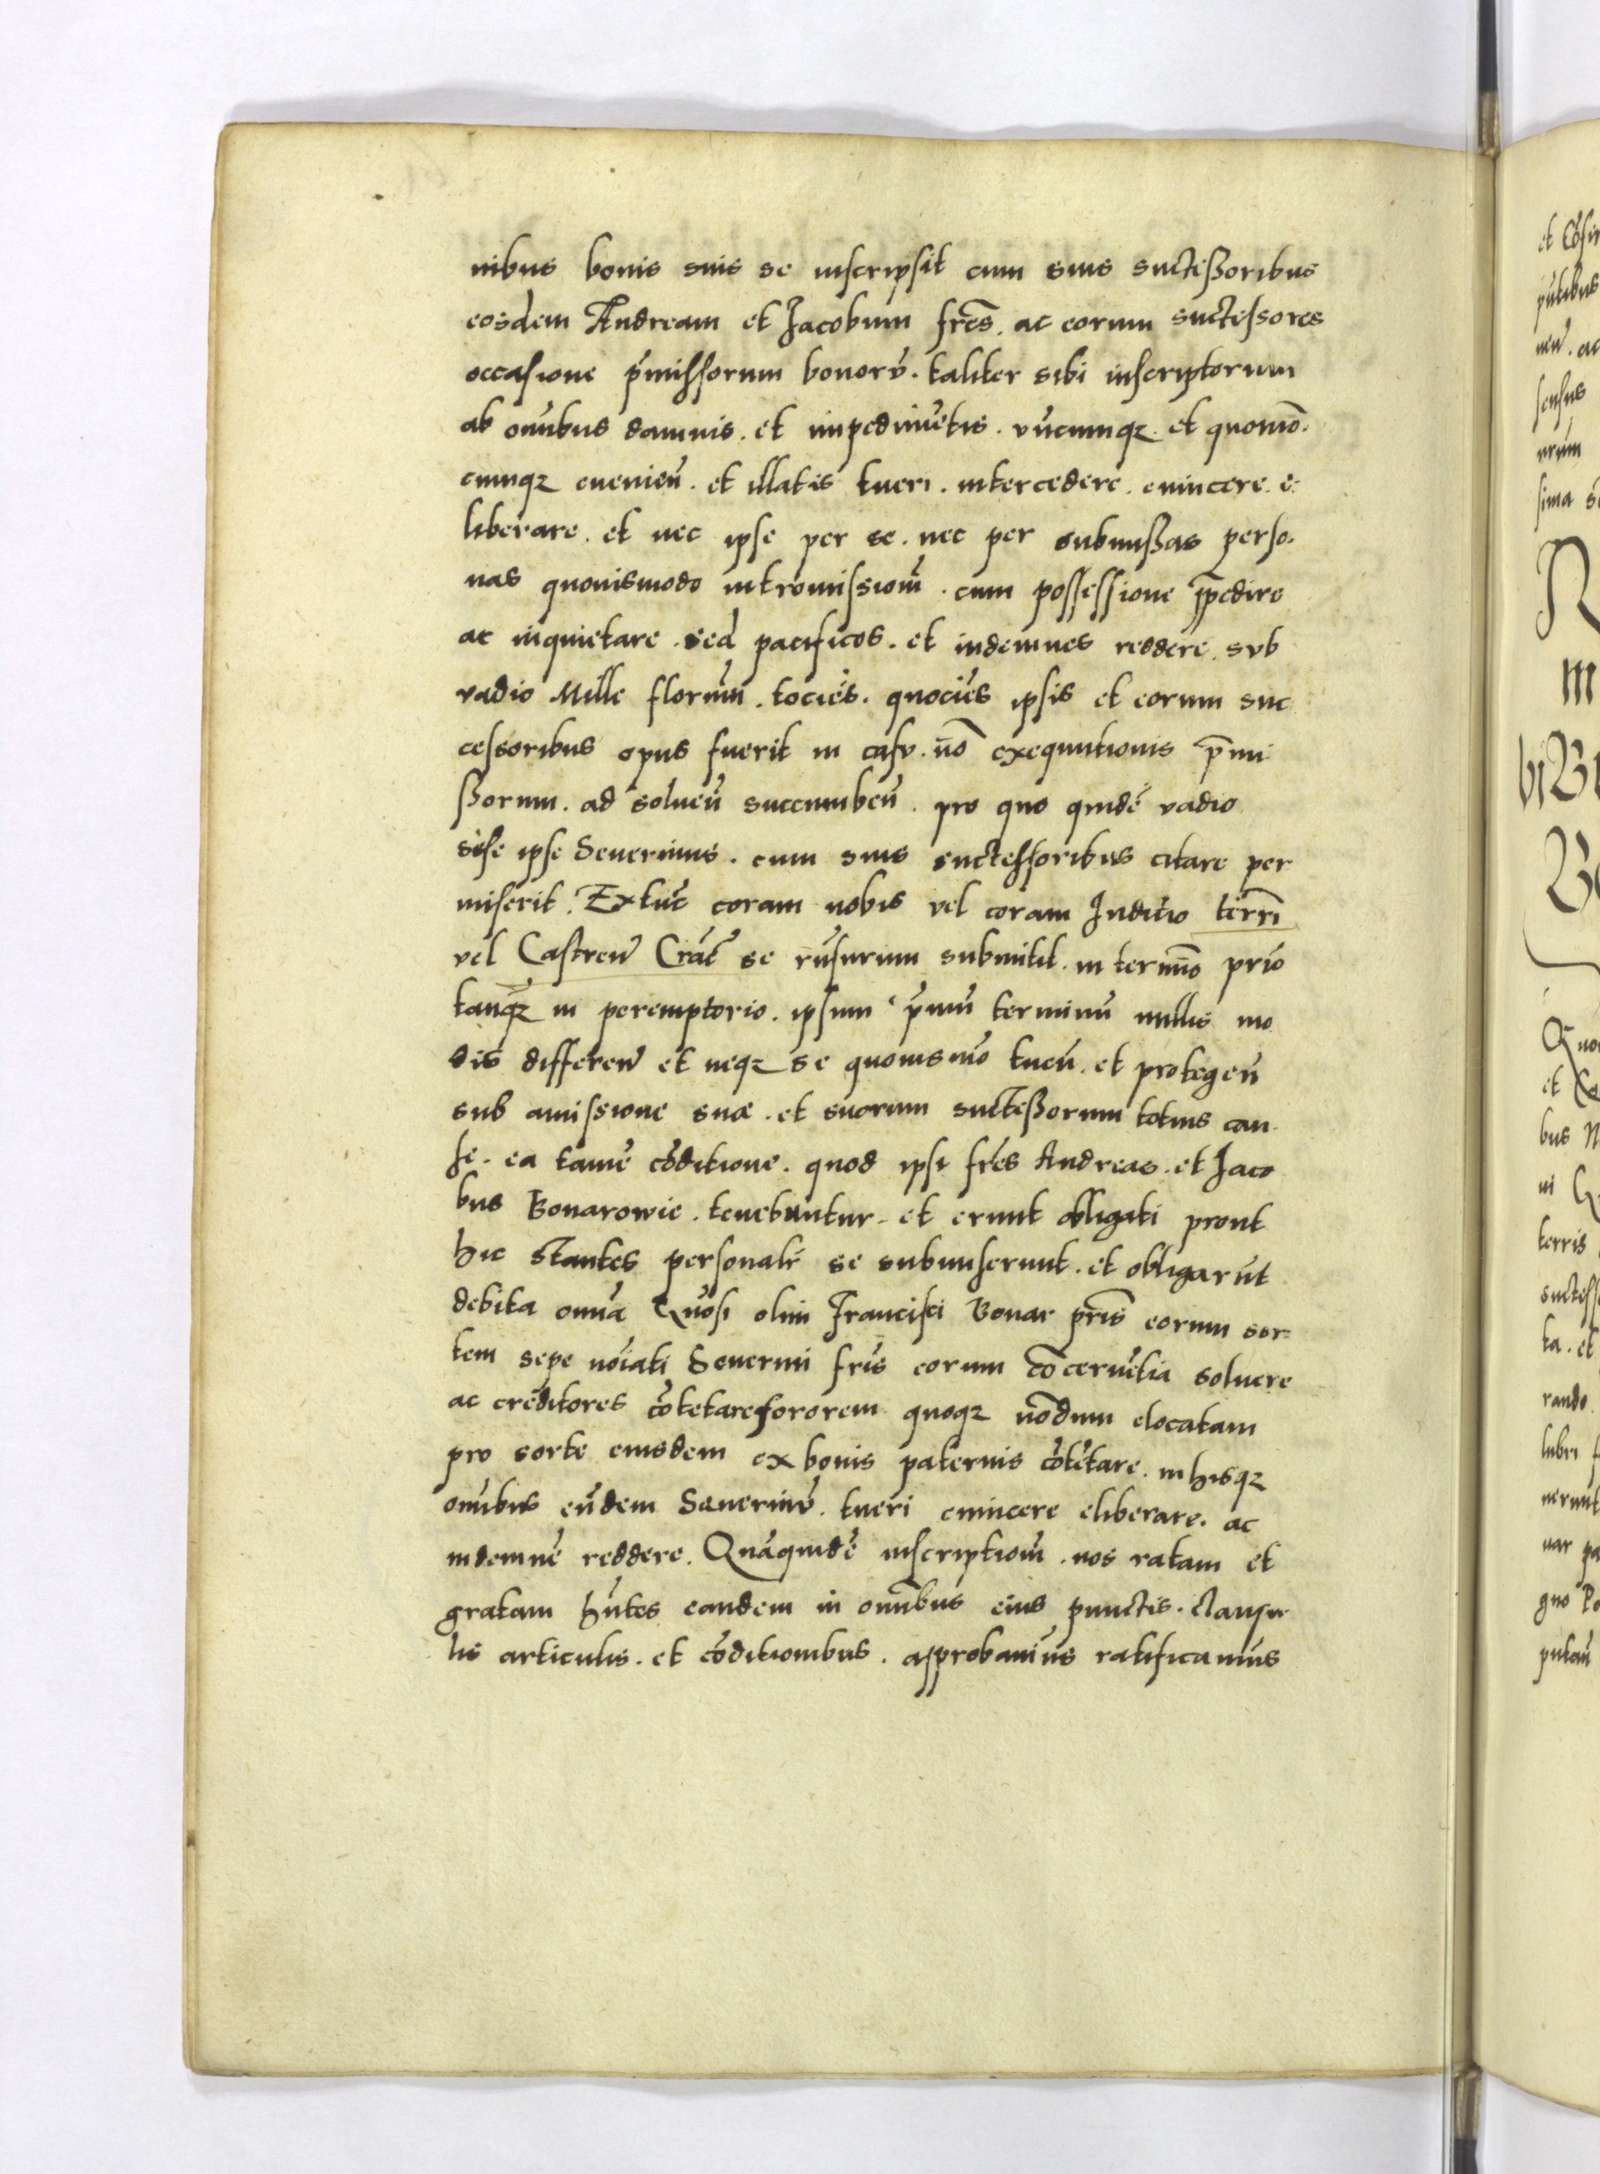 nibus bonis suis se inscripsit cum suis successoribus
eosdem Andream et Jacobum fr̃es. ac eorum successores
occasione p̃missorum bonorũ. taliter sibi inscriptorum
ab oĩbus damnis. et impedimẽtis. vñcumqz. et quomõ.
cumqz evenieñ. et illatis tueri. intercedere. evincere. e-
liberare. et nec ipse per se. nec per submissas perso-
nas quovismodo intromissioñ. cum possessione ĩpedire
ac inquietare. sed pacificos. et indemnes reddere. sub
vadio Mille florñm. tociẽs. quociẽs ipsis et eorum suc
cessoribus opus fuerit in casu. ño exequutionis p̃mi
ssorum. ad solveñ succumbeñ. pro quo quidẽ vadio
si se ipse Severinus. cum suis successoribus citare per
miserit. Extũc coram nobis vel coram Juditio terrĩ
vel Castreñ Crãc se rñsurum submitit. in termĩo prĩo
tanqz in peremptorio. ipsum p̃mũ terminũ nullis mo
dis differeñ et neqz se quovismõ tueñ. et protegeñ
sub amissione suæ. et suorum successorum totius cau-
se. ea tamẽ cõditione. quod ipsi fr̃es Andreas. et Jaco
bus Bonarowie. tenebuntur. et erunt obligati prout
hic stantes personalr̃ se submiserunt. et obligarũt
debita omĩa Gñosi olim Francisci Bonar pr̃is eorum sor-
tem sepe nõiati Severini fr̃is eorum cõcernẽtia solvere
ac creditores cõtetare sororem quoqz nõdum elocatam
pro sorte eiusdem ex bonis paternis cõtẽtare. in hisqz
omĩbus eũdem Severinũ. tueri evincere eliberare. ac
indemnẽ reddere. Quãquidẽ inscriptioñ. nos ratam et
gratam hñtes eandem in omĩbus eius punctis. clausu
lis articulis. et cõditionibus. approbamus ratificamus